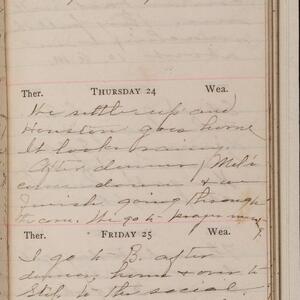 Ther. THURSDAY 24 Wea.
We settle up and
Houston goes home
It looks rainy.
After dinner Mel'
come down & we
finish going through
the corn. We go to prayer
Ther. FRIDAY 25 Wea.
I go to B. after
dinner, home & over to
to the social